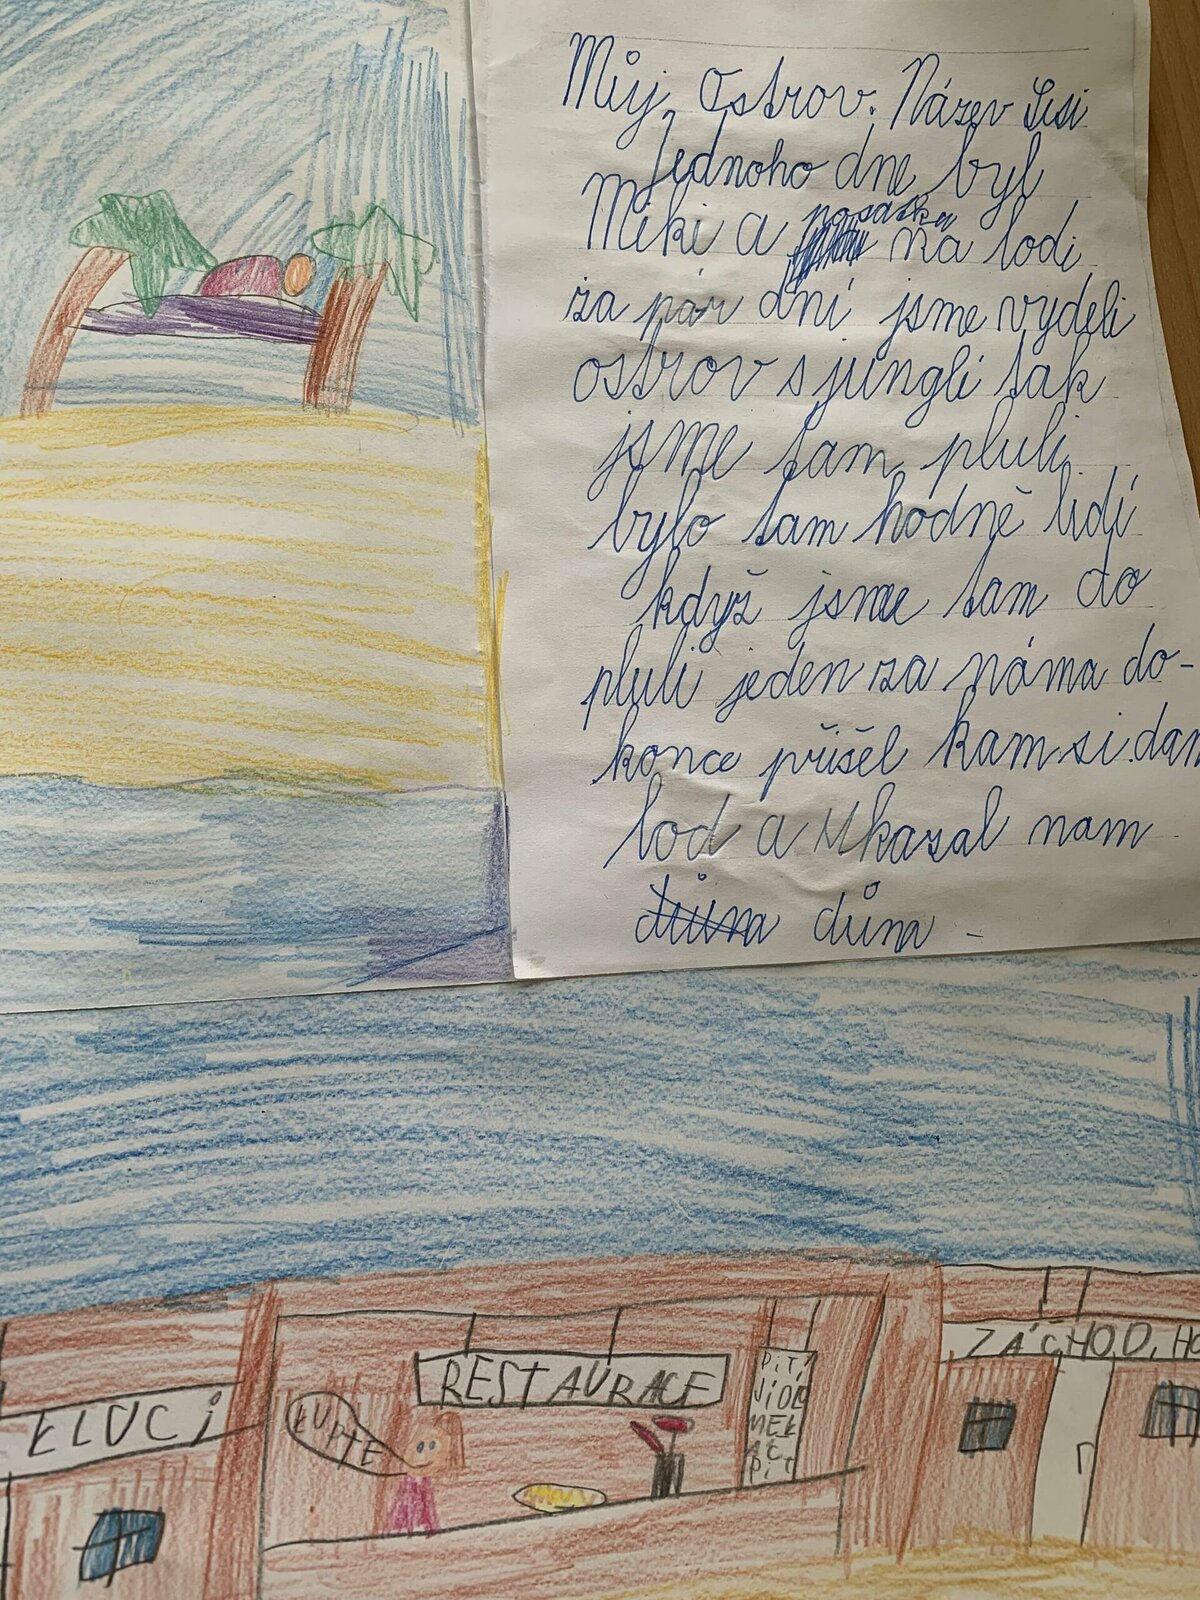 Můj Ostrov. Název Sisi
Jednoho dne byl
posádka
Miki a na lodi
za pár dní jsme vydeli
ostrov s jungli tak
jsme tam pluli
bylo tam hodně lidí
když jsme tam do
pluli jeden za náma do-
konce přišel kam si dam
lod a ukazal nam
důna důna -
RESTAURACE
ZÁCHOD, HO
KLUCI
KUPTE
PITÍ
JÍDL
MEK
AČ
PIT